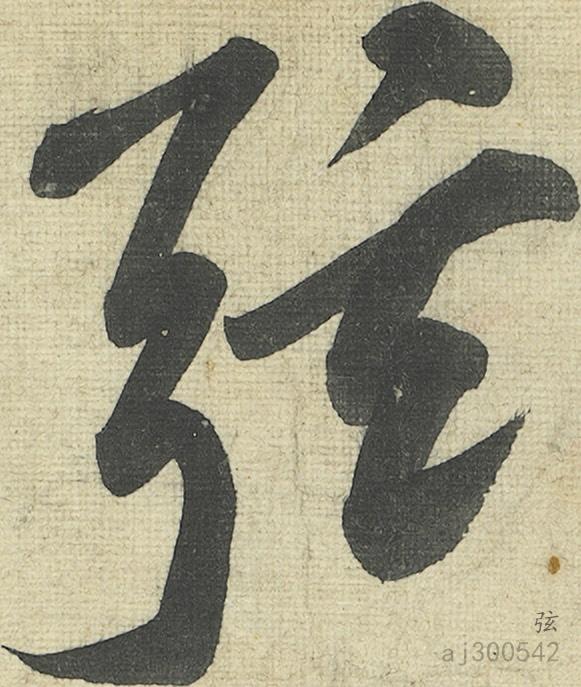 弦
弦
aj300542